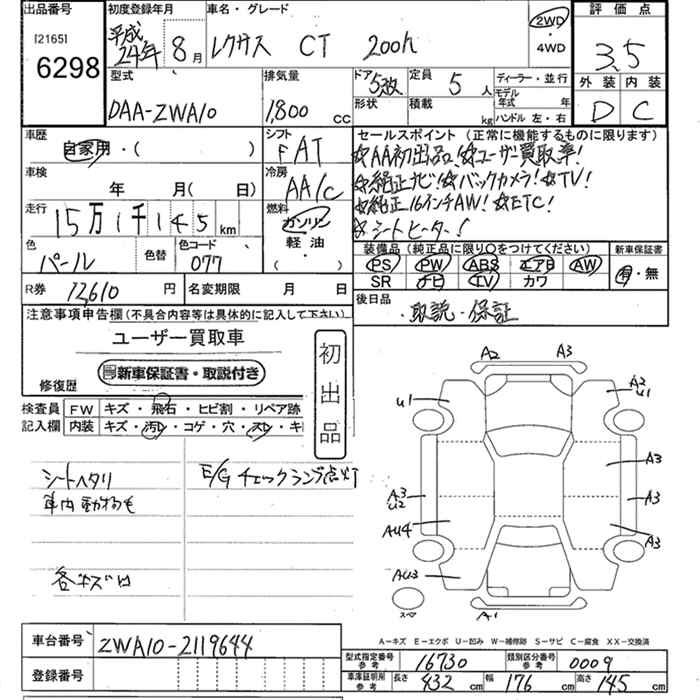 出品番号 初度登録年月 車名・グレード 評価点
[2165] 6298
平成24年 8月 レクサス CT 200h 2WD・4WD 3.5
外装 内装
D C
型式 排気量 ドア 定員 ディーラー・並行
DAA-ZWA10 1,800 cc 5改 5人 モデル年式 年
形状 積載 kg ハンドル 左・右
車歴 シフト セールスポイント (正常に機能するものに限ります)
自家用・( ) FAT ☆AA初出品!☆ユーザー買取車!
車検 冷房 ☆純正ナビ!☆バックカメラ!☆TV!
年 月( 日) AA/C ☆純正16インチAW!☆ETC!
走行 燃料 ☆シートヒーター!
15万1千145km ガソリン 軽油・( )
色 色替 色コード 装備品 (純正品に限り○をつけてください) 新車保証書
パール 077 PS PW ABS エアB AW 有・無
SR ナビ TV カワ
R券 12,610 円 名変期限 月 日 後日品
注意事項申告欄(不具合内容等は具体的に記入して下さい) ・取説・保証
ユーザー買取車
新車保証書・取説付き
初出品
修復歴
検査員記入欄 FW キズ・飛石・ヒビ割・リペア跡
内装 キズ・汚レ・コゲ・穴・スレ・キ
シートヘタリ E/Gチェックランプ点灯
車内動物毛
各キズ凹
A2 A3
U1 A2 U1
A3
A3 U2 A3
AU4 A3
AU3
スペ A1
A-キズ E-エクボ U-凹み W-補修跡 S-サビ C-腐食 XX-交換済
車台番号 ZWA10-2119644
登録番号
型式指定番号参考 16730 類別区分番号参考 0009
車庫証明用参考 長さ 432 cm 幅 176 cm 高さ 145 cm